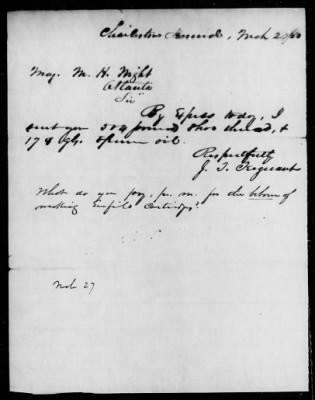 Charleston Arsenal, Mch 24/63
Maj. M. H. Wright
Atlanta
Sir
By Express to day, I
sent you 504 pounds Shoe thread, &
174 gls. Sperm oil.
Respectfully
J. T. Trezevant
What do you pay, pr. m. for the labor of
making Enfield Cartridges?
Mch 27